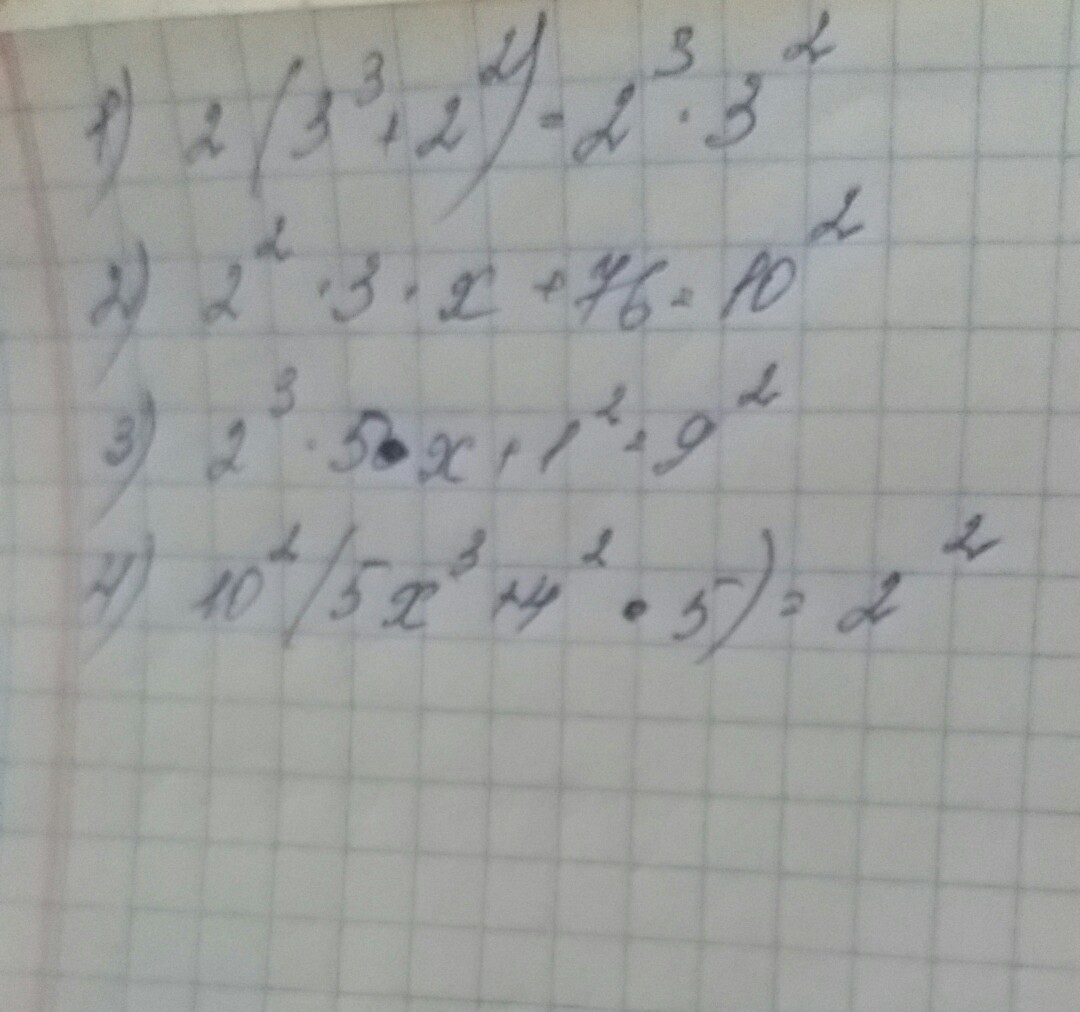 1) 2(3³+2²)=2³·3²
2) 2²·3·x+76=10²
3) 2³·5·x+1²=9²
4) 10²(5x³+4²·5)=2²